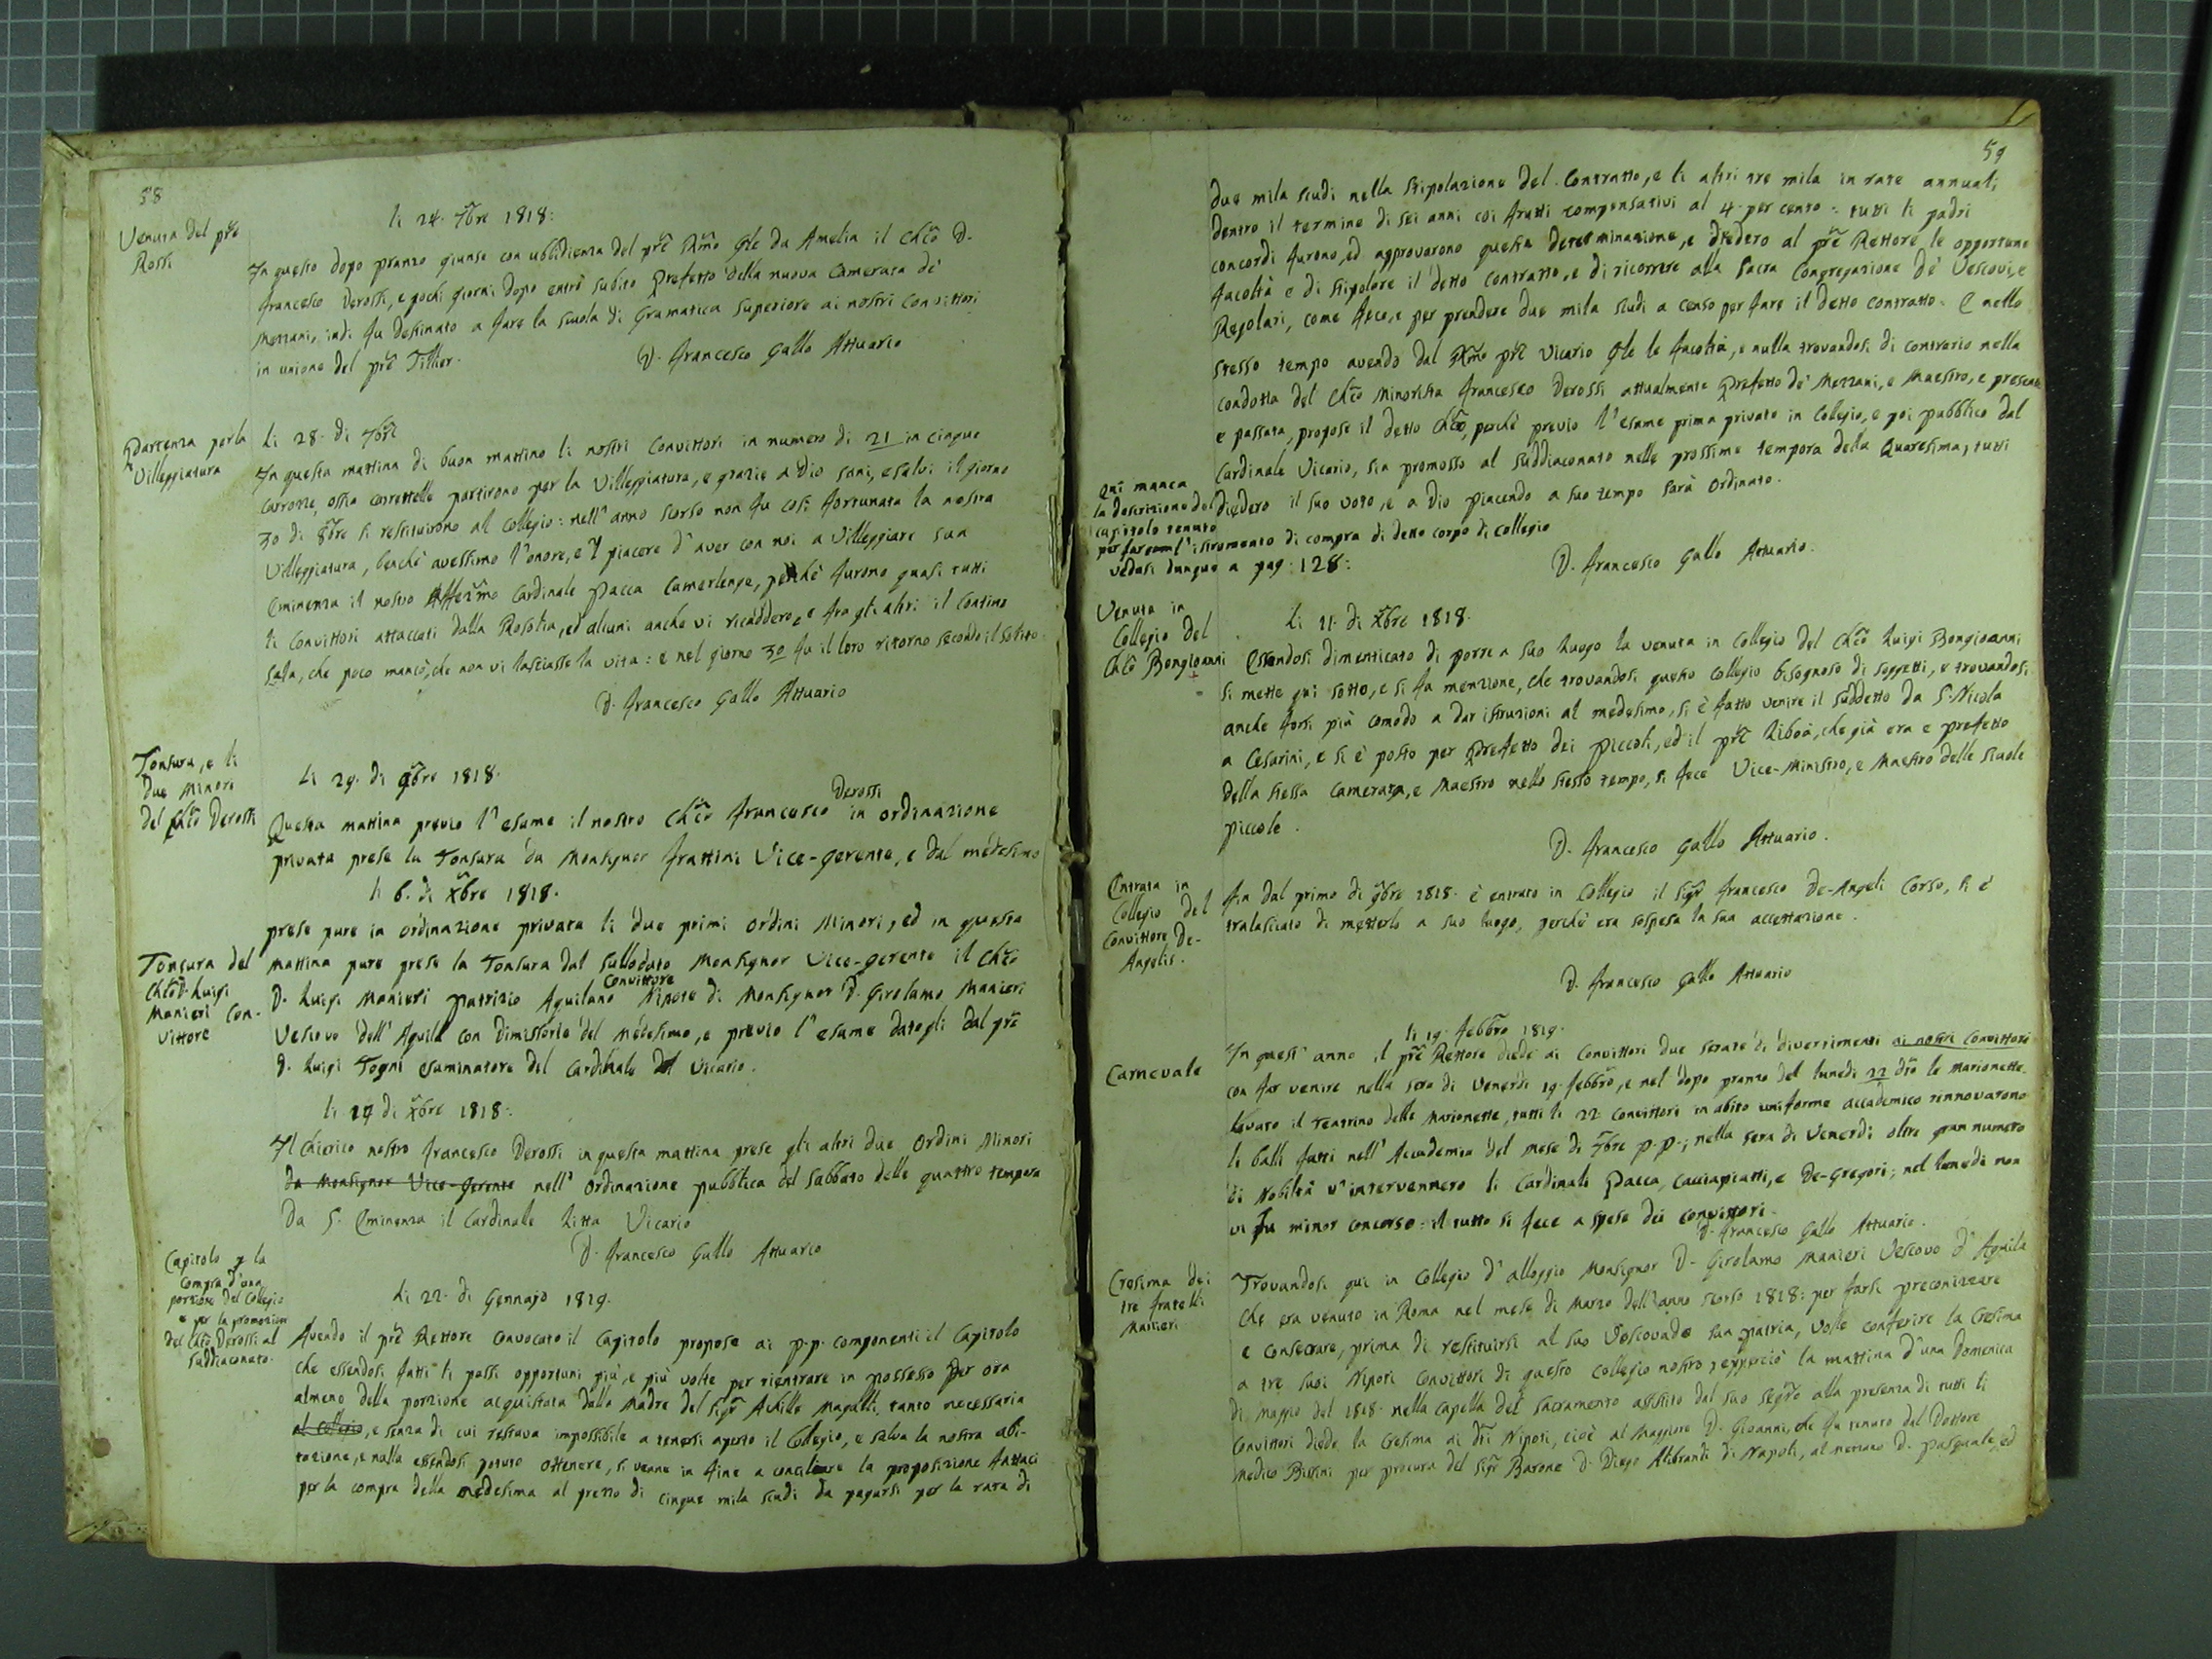 58
Venuta del pre
Rossi
li 24. 7bre 1818:
In questo dopo pranzo giunse con ubbidienza del pre Rmo Gle da Amelia il Chco D.
Francesco Derossi, e pochi giorni dopo entrò subito Prefetto della nuova Camerata de'
Mezzani, indi fu destinato a fare la scuola di Gramatica superiore ai nostri Convittori
in unione del pre Tillier.
D. Francesco Gallo Attuario
Partenza per la
Villeggiatura
Li 28. di 7bre
In questa mattina di buon mattino li nostri Convittori in numero di 21 in cinque
carrozze, ossia carrettelle partirono per la Villeggiatura, e grazie a Dio sani, e salvi il giorno
30 di 8bre si restituirono al Collegio: nell'anno scorso non fu così fortunata la nostra
Villeggiatura, benchè avessimo l'onore, e 'l piacere d'aver con noi a Villeggiare sua
Eminenza il nostro Cardinale Pacca Camerlengo, perchè furono quasi tutti
li Convittori attaccati dalla Rosolia, ed alcuni anche vi ricaddero, e fra gli altri il Contino
Sala, che poco mancò, che non vi lasciasse la vita: e nel giorno 30 fu il loro ritorno secondo il solito.
D. Francesco Gallo Attuario
Tonsura, e li
due Minori
del Chco Derossi
Li 29. di 9bre 1818.
Questa mattina previo l'esame il nostro Chco Francesco Derossi in ordinazione
privata prese la Tonsura da Monsignor Frattini Vice-gerente, e dal medesimo
li 6. di Xbre 1818.
prese pure in ordinazione privata li due primi ordini Minori, ed in questa
Tonsura del
Chco D. Luigi
Manieri Con-
vittore
mattina pure prese la Tonsura dal sullodato Monsignor Vice-gerente il Chco
D. Luigi Manieri Patrizio Aquilano Convittore Nipote di Monsignor D. Girolamo Manieri
Vescovo dell'Aquila con Dimissoria del medesimo, e previo l'esame datogli dal pre
D. Luigi Togni esaminatore del Cardinale Vicario.
li 17 di Xbre 1818:
Il Chierico nostro Francesco Derossi in questa mattina prese gli altri due Ordini Minori
da Monsignor Vice-Gerente nell'Ordinazione pubblica del sabbato delle quattro tempora
da S. Eminenza il Cardinale Litta Vicario
D. Francesco Gallo Attuario
Capitolo p la
compra d'una
porzione del Collegio
e per la promozione
del Chco Derossi al
suddiaconato.
Li 22. di Gennajo 1819.
Avendo il pre Rettore convocato il Capitolo propose ai p.p. componenti il Capitolo
che essendosi fatti li passi opportuni più, e più volte per rientrare in possesso per ora
almeno della porzione acquistata dalla Madre del Sigr Achille Magalli, tanto necessaria
al Collegio, e senza di cui restava impossibile a tenersi aperto il Collegio, e salva la nostra abi-
tazione, e nulla essendosi potuto ottenere, si venne in fine a conciliare la proposizione fattaci
per la compra della medesima al prezzo di cinque mila scudi da pagarsi per la rata di
59
due mila scudi nella stipolazione del Contratto, e li altri tre mila in rate annuali
dentro il termine di sei anni coi frutti compensativi al 4. per cento: tutti li padri
concordi furono, ed approvarono questa determinazione, e diedero al pre Rettore le opportune
facoltà e di stipolare il detto contratto, e di ricorrere alla Sacra Congregazione de' Vescovi, e
Regolari, come fece, e per prendere due mila scudi a censo per fare il detto contratto. E nello
stesso tempo avendo dal Rmo pre Vicario Gle le facoltà, e nulla trovandosi di contrario nella
condotta del Chco Minorista Francesco Derossi attualmente Prefetto de' Mezzani, e Maestro, e presente
e passata, propose il detto Chco, perchè previo l'esame prima privato in Collegio, e poi pubblico dal
Cardinale Vicario, sia promosso al suddiaconato nelle prossime tempora della Quaresima, tutti
diedero il suo voto, e a Dio piacendo a suo tempo sarà ordinato.
Qui manca
la descrizione del
capitolo tenuto
per far l'istromento di compra di detto corpo di collegio
vedasi dunque a pag: 128:
D. Francesco Gallo Attuario.
Venuta in
Collegio del
Chco Bongioanni
Li 11. di Xbre 1818.
Essendosi dimenticato di porre a suo luogo la venuta in Collegio del Chco Luigi Bongioanni
si mette qui sotto, e si fa menzione, che trovandosi questo Collegio bisognoso di soggetti, e trovandosi
anche forsi più comodo a dar istruzioni al medesimo, si è fatto venire il suddetto da S. Nicola
a Cesarini, e si è posto per Prefetto dei Piccoli, ed il pre Riboà, che già era e prefetto
della stessa Camerata, e Maestro nello stesso tempo, si fece Vice-Ministro, e Maestro delle scuole
piccole.
D. Francesco Gallo Attuario.
Entrata in
Collegio del
Convittore De-
Angelis.
Fin dal primo di 9bre 1818. è entrato in Collegio il Sigr Francesco De-Angeli Corso, si è
tralasciato di metterlo a suo luogo, perchè era sospesa la sua accettazione.
D. Francesco Gallo Attuario
li 19. Febbro 1819.
Carnevale
In quest'anno il pre Rettore diede ai Convittori due serate di divertimenti ai nostri Convittori
con far venire nella sera di Venerdì 19. Febbro, e nel dopo pranzo del lunedì 22 dto le marionette.
Levato il Teatrino delle Marionette, tutti li 22 Convittori in abito uniforme accademico rinnovarono
li balli fatti nell'Accademia del mese di 7bre p.p.; nella sera di Venerdì oltre gran numero
di Nobiltà v'intervennero li Cardinali Pacca, Cacciapiatti, e De-Gregori; nel lunedì non
vi fu minor concorso: il tutto si fece a spese dei convittori.
D. Francesco Gallo Attuario.
Cresima dei
tre fratelli
Manieri
Trovandosi qui in Collegio d'alloggio Monsignor D. Girolamo Manieri Vescovo d'Aquila
che era venuto in Roma nel mese di Marzo dell'anno scorso 1818: per farsi preconizzare
e consecrare, prima di restituirsi al suo Vescovado sua patria, volle conferire la Cresima
a tre suoi Nipoti Convittori di questo Collegio nostro, epperciò la mattina d'una Domenica
di Maggio del 1818. nella Capella del Sacramento assistito dal suo Segrio alla presenza di tutti li
Convittori diede la Cresima ai dti Nipoti, cioè al Maggiore D. Gioanni, che fu tenuto dal Dottore
Medico Bissini per procura del Sigr Barone D. Diego Alibrandi di Napoli, al mezzano D. Pasquale, ed